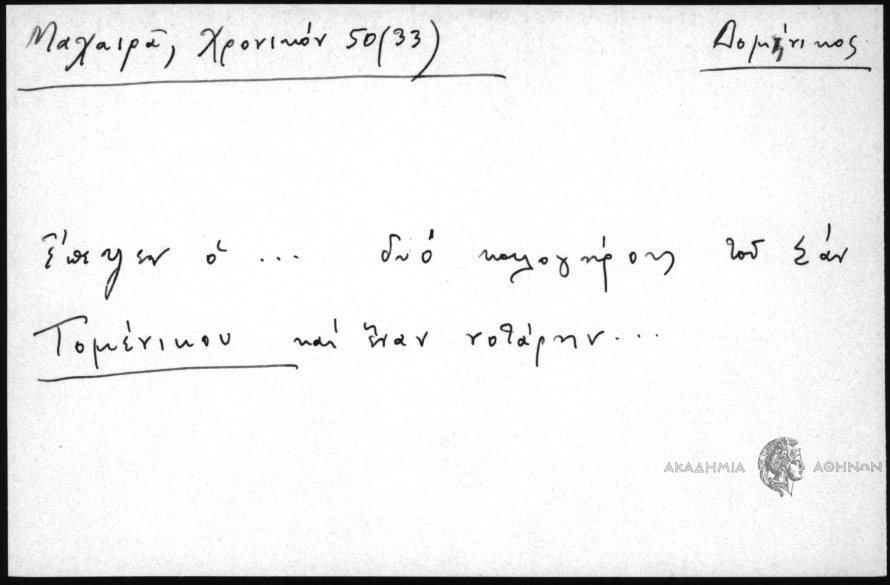 Μαχαιρᾶ, Χρονικόν 50(33)
Δομήνικος
Ἔπεψεν ὁ ... δυό καλογήρους τοῦ Σάν
Τομένικου καί ἕναν νοτάρην...
ΑΚΑΔΗΜΙΑ ΑΘΗΝΩΝ